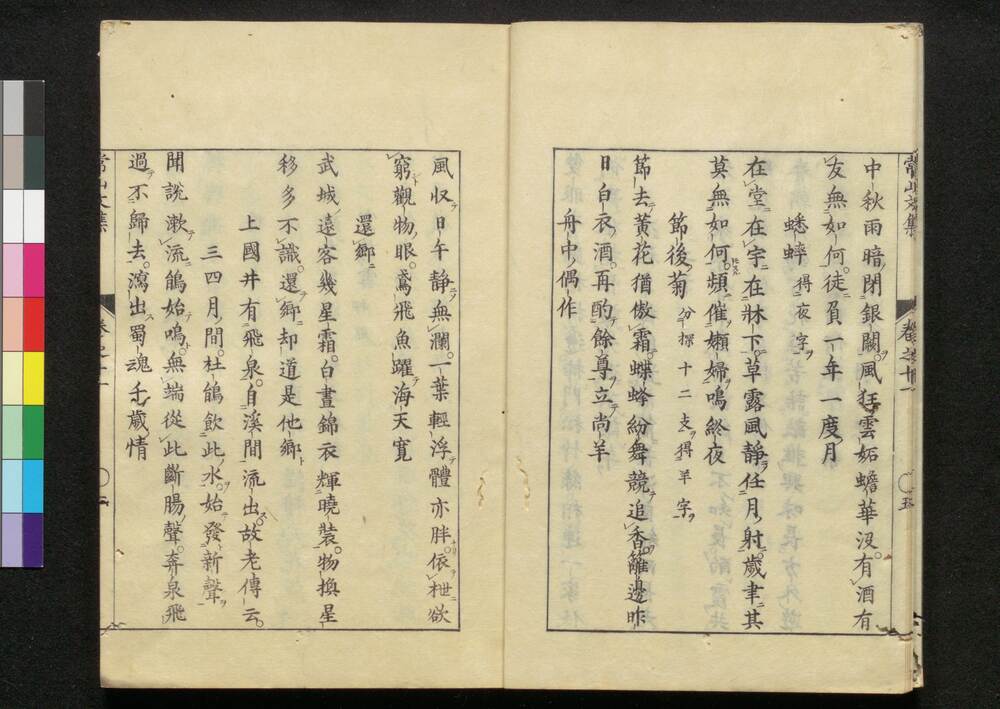 中秋雨暗閉銀闕。風狂雲妬蟾華沒。有酒有
友無如何。徒負一年一度月
蟋蟀 得夜字
在堂在宇在牀下。草露風靜任月射。歲聿其
莫無如何。頻催嬾婦鳴終夜
節後菊 分探十二支得羊字
節去黃花猶傲霜。蝶蜂紛舞競追香。籬邊昨
日白衣酒。再酌餘尊立尚羊
舟中偶作
風收日午靜無瀾。一葉輕浮體亦胖。依枻欲
窮觀物眼。鳶飛魚躍海天寬
還鄉
武城遠客幾星霜。白晝錦衣輝曉裝。物換星
移多不識。還鄉却道是他鄉
上國井有飛泉。自溪間流出。故老傳云。
三四月間。杜鵑飲此水。始發新聲
聞說漱流鵑始鳴。無端從此斷腸聲。奔泉飛
過不歸去。瀉出蜀魂千歲情
常山文集
卷之十一
五